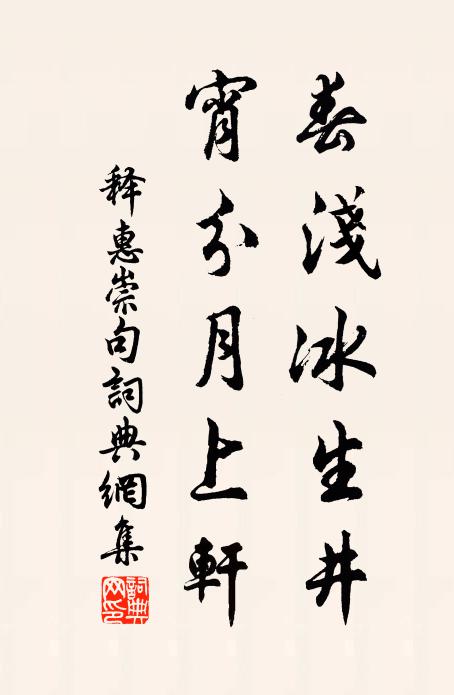 春淺冰生井
宵分月上軒
释惠崇句詞典網集
詞典網印